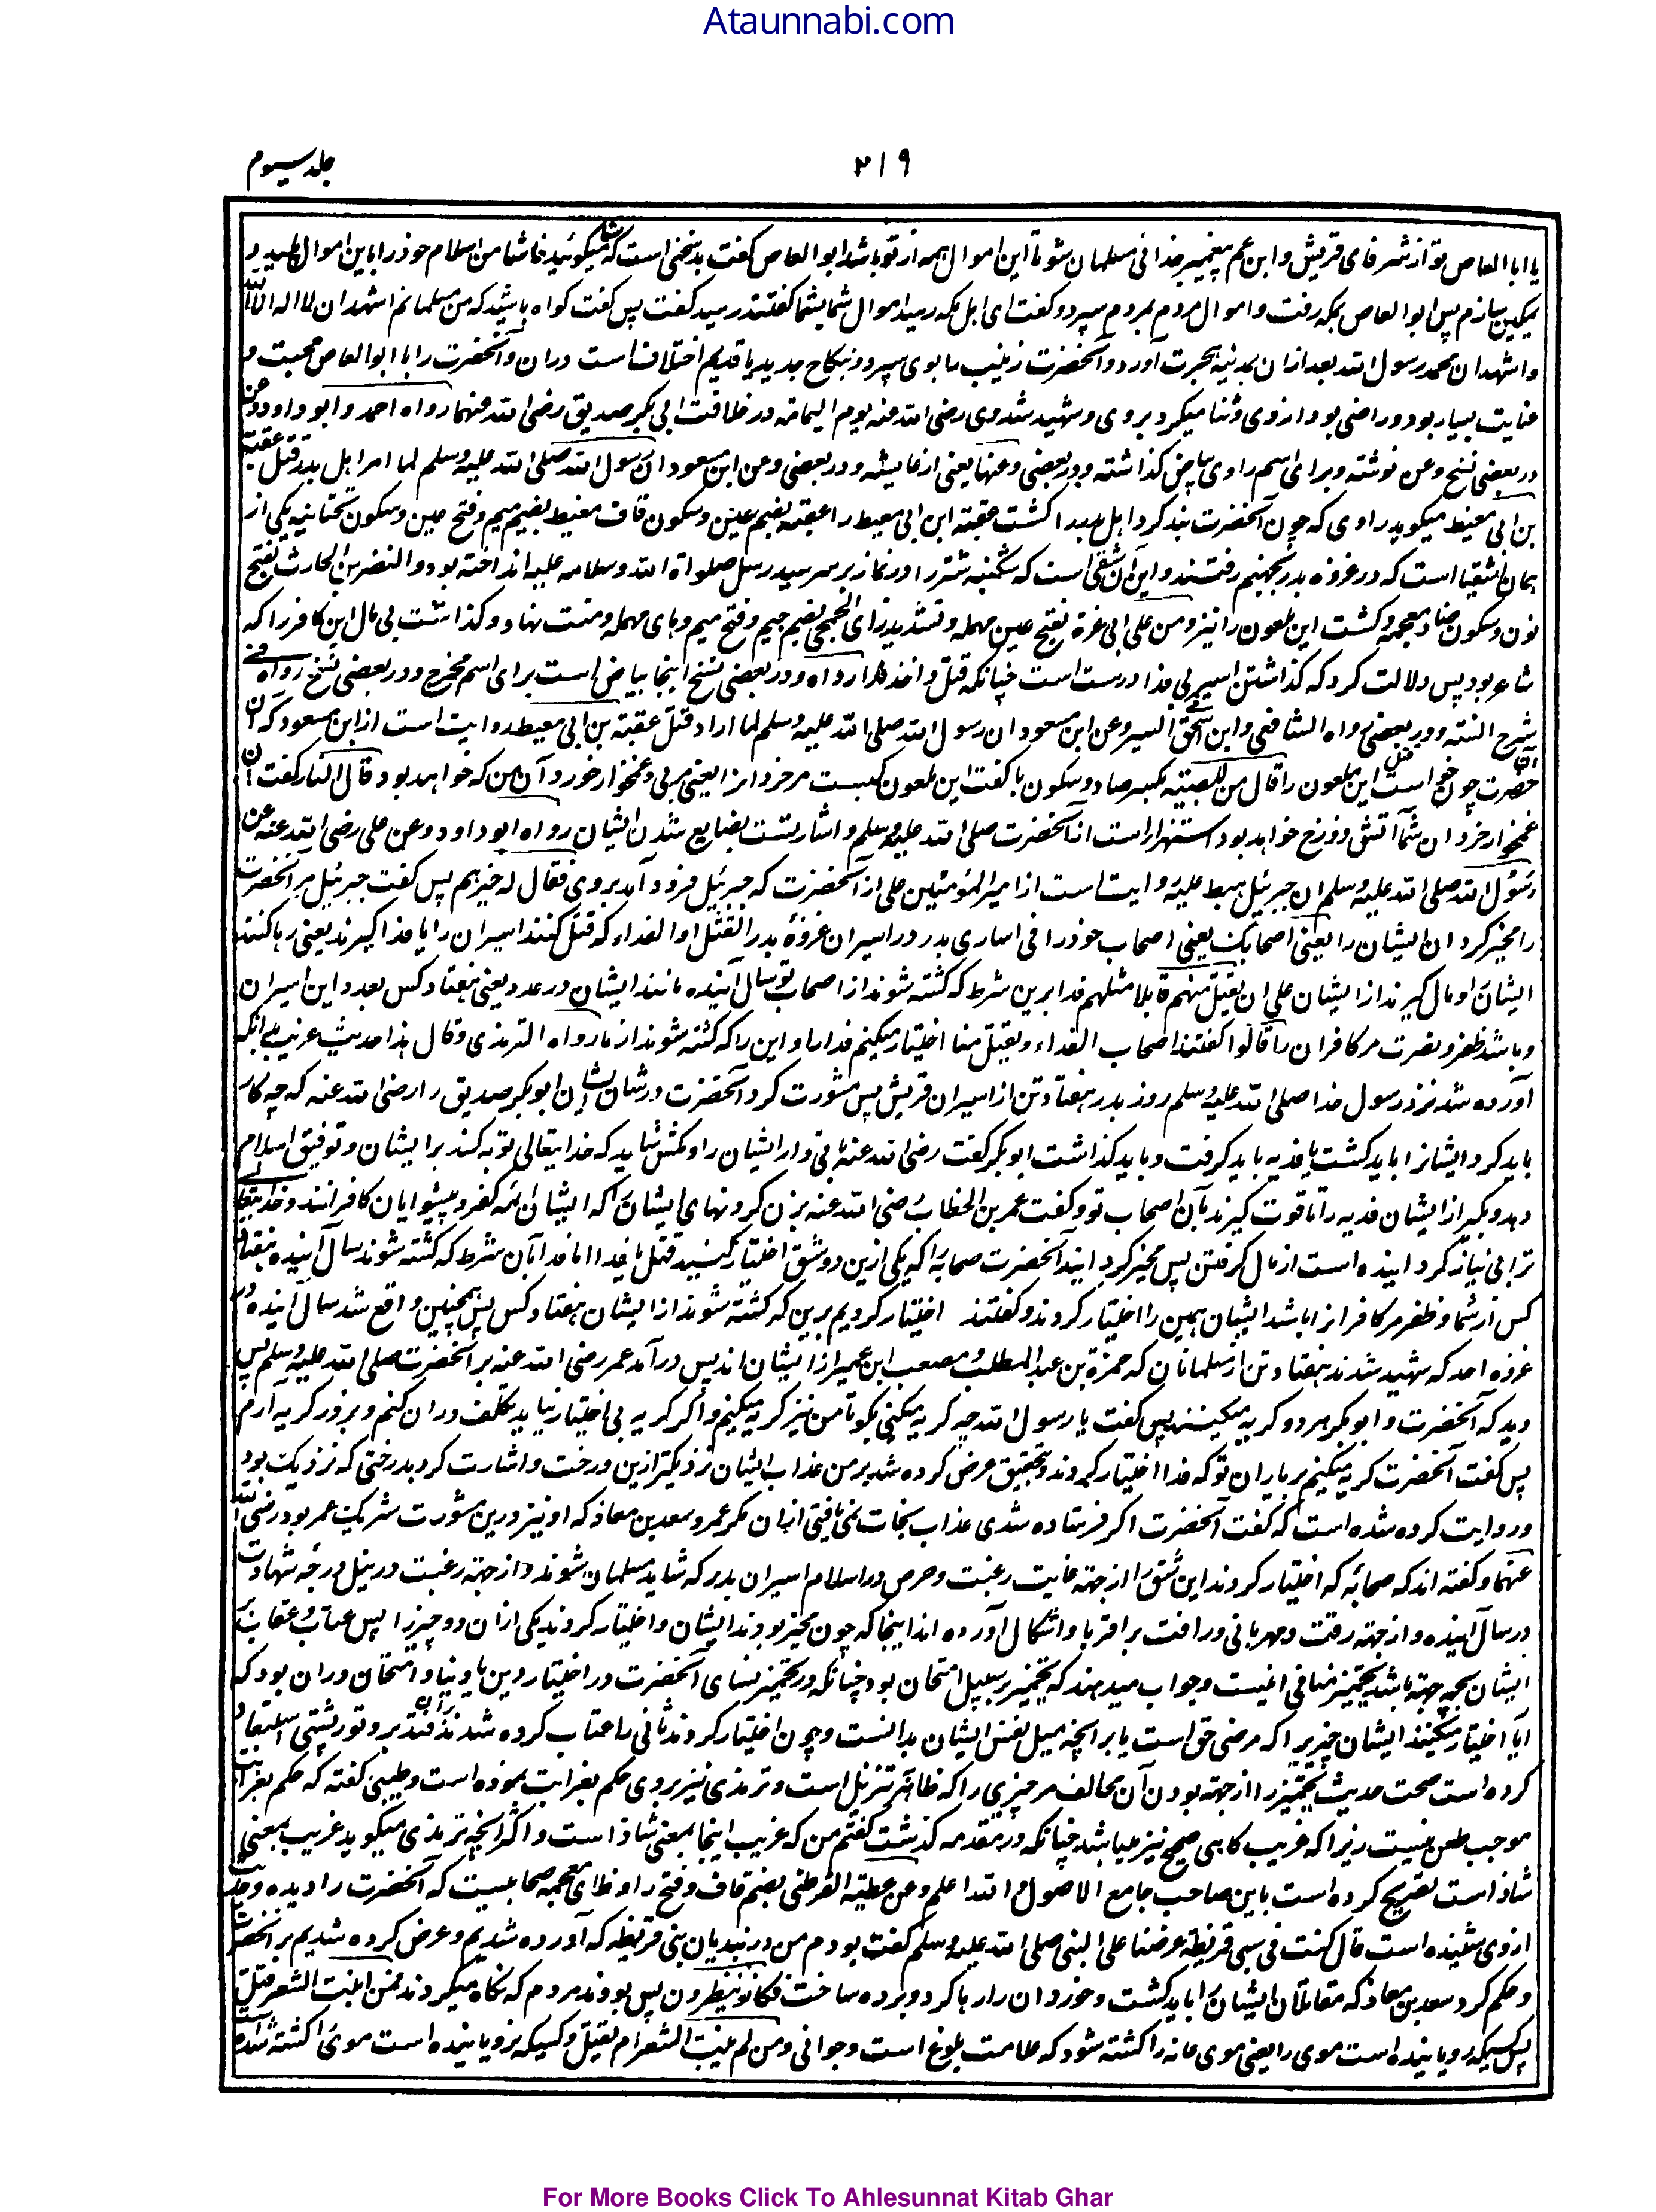 Ataunnabi.com
۴۱۹
جلد سیوم
یا ابا العاص تو از شرفای قریش و ابن عم پیغمبر خدائی مسلمان شو تا این اموال همه از تو باشد ابو العاص گفت بد سخنی است که میگوئید شما من اسلام خود را باین اموال پلید و
پس ابو العاص بمکه رفت و اموال مردم بمردم سپرد و گفت ای اهل مکه رسید اموال شما بشما گفتند رسید گفت پس گفت گواه باشید که من مسلمانم اشهد ان لا اله الا الله
و اشهد ان محمد رسول الله بعد ازان بمدینه هجرت آورد و آنحضرت زینب را بوی سپرد و بنکاح جدید یا قدیم اختلاف است دران و آنحضرت را با ابو العاص محبت و
عنایت بسیار بود و راضی بود از وی و ثنا میکرد بر وی و شهید شد وی رضی الله عنه یوم الیمامة در خلافت ابی بکر صدیق رضی الله عنهما رواه احمد و ابو داود و عن
در بعضی نسخ وعن نوشته و برای اسم راوی بیاض گذاشته و در بعضی وعنها یعنی از عایشه و در بعضی وعن ابن مسعود ان رسول الله صلی الله علیه وسلم لما اسر اهل بدر قتل عقبة
بن ابی معیط میگوید راوی که چون آنحضرت بند کرد اهل بدر را کشت عقبة ابن ابی معیط را عقبه بضم عین و سکون قاف معیط بضم میم و فتح عین و سکون تحتانیه یکی از
همان اشقیا است که در غزوه بدر بجهنم رفتند و این آن شقی است که شکنبه شتر را در نماز بر سر سید رسل صلواة الله وسلامه علیه انداخته بود و النضر بن الحارث بفتح
نون و سکون ضاد معجمه و کشت این ملعون را نیز و من علی ابی عزة بفتح عین مهمله و تشدید زای الجمحی بضم جیم و فتح میم و حای مهمله و منت نهاد و گذاشت بی مال این کافر را که
شاعر بود پس دلالت کرد که گذاشتن اسیر بی فدا درست است چنانکه قتل و اخذ فدا رواه و در بعضی نسخ اینجا بیاض است برای اسم مخرج و در بعضی نسخ رواه فی
شرح السنة و در بعضی رواه الشافعی و ابن اسحق فی السیر وعن ابن مسعود ان رسول الله صلی الله علیه وسلم لما اراد قتل عقبة بن ابی معیط روایت است از ابن مسعود که آن
حضرت چون خواست قتل این ملعون را قال من للصبیة بکسر صاد و سکون با گفت این ملعون کیست مر خردان را یعنی مربی و غمخوار خوردان من که خواهد بود قال النار گفت آن
غمخوار خردان شما آتش دوزخ خواهد بود استهزا است از آنحضرت صلی الله علیه وسلم و اشارتست بضایع شدن ایشان رواه ابو داود وعن علی رضی الله عنه عن
رسول الله صلی الله علیه وسلم ان جبرئیل هبط علیه روایت است از امیر المؤمنین علی از آنحضرت که جبرئیل فرود آمد بر وی فقال له خیرهم پس گفت جبرئیل مر آنحضرت
را مخیر گردان ایشان را یعنی اصحابک یعنی اصحاب خود را فی اساری بدر در اسیران غزوهٔ بدر القتل او الفداء که قتل کنند اسیران را یا فدا گیرند یعنی رها کنند
ایشان او مال گیرند از ایشان علی ان یقتل منهم قابلا مثلهم فدا برین شرط که کشته شوند از اصحاب تو سال آینده مانند ایشان در عدد یعنی هفتاد کس بعدد این اسیران
و باشد ظفر و نصرت مر کافران را قالوا گفتند اصحاب الفداء ویقتل منا اختیار میکنیم فدا را و این را که کشته شوند از ما رواه الترمذی وقال هذا حدیث غریب بدانکه
آورده شد نزد رسول خدا صلی الله علیه وسلم روز بدر هفتاد تن از اسیران قریش پس مشورت کرد آنحضرت در شان ایشان ابو بکر صدیق را رضی الله عنه که چه کار
باید کرد ایشانرا باید کشت یا فدیه باید گرفت و باید گذاشت ابو بکر گفت رضی الله عنه باقی دار ایشان را و مکش شاید که خدایتعالی توبه کند بر ایشان و توفیق اسلام
دهد و بگیر از ایشان فدیه را تا قوت گیرند بآن اصحاب تو و گفت عمر بن الخطاب رضی الله عنه بزن گردنهای ایشان را که ایشان ائمه کفر و پیشوایان کافرانند و خدایتعالی
ترا بی نیاز گردانیده است از مال گرفتن پس مخیر گردانید آنحضرت صحابه را که یکی ازین دو شق اختیار کنید قتل یا فدا اما فدا بآن شرط که کشته شوند سال آینده هفتاد
کس از شما و ظفر مر کافرانرا باشد ایشان همین را اختیار کردند و گفتند اختیار کردیم برین که کشته شوند از ایشان هفتاد کس پس همچنین واقع شد سال آینده در
غزوه احد که شهید شدند هفتاد تن از مسلمانان که حمزة بن عبد المطلب و مصعب ابن عمیر از ایشان اند پس درآمد عمر رضی الله عنه بر آنحضرت صلی الله علیه وسلم پس
دید که آنحضرت و ابو بکر هر دو گریه میکنند پس گفت یا رسول الله چه گریه میکنی بگو تا من نیز گریه میکنم و اگر گریه بی اختیار نیاید تکلف دران کنم و بزور گریه آرم
پس گفت آنحضرت گریه میکنم بر یاران تو که فدا اختیار کردند و بتحقیق عرض کرده شد بر من عذاب ایشان نزدیکتر ازین درخت و اشارت کرد بدرختی که نزدیک بود
و روایت کرده شده است که گفت آنحضرت اگر فرستاده شدی عذاب نجات نمی یافتی ازان مگر عمر و سعد بن معاذ که او نیز درین مشورت شریک عمر بود رضی الله
عنهما و گفته اند که صحابه که اختیار کردند این شق را از جهة غایت رغبت و حرص در اسلام اسیران بدر که شاید مسلمان شوند و از جهة رغبت در نیل درجه شهادت
در سال آینده و از جهة رقت و مهربانی و رافت بر اقربا و اشکال آورده اند اینجا که چون مخیر بودند ایشان و اختیار کردند یکی ازان دو چیز را پس عتاب و عقاب بر
ایشان بچه جهة باشد تخییر منافی انیست و جواب میدهند که تخییر بر سبیل امتحان بود چنانکه در تخییر نسای آنحضرت در اختیار دین یا دنیا و امتحان دران بود که
آیا اختیار میکنند ایشان چیزیرا که مرضی حق است یا برانچه میل نفس ایشان بدانست و چون اختیار کردند ثانی را عتاب کرده شدند بران و تورپشتی استبعاد
کرده است صحت حدیث تخییر را از جهة بودن آن مخالف مر چیزی را که ظاهر تنزیل است و ترمذی نیز بروی حکم بغرابت نموده است و طیبی گفته که حکم بغرابت
موجب طعن نیست زیرا که غریب گاهی صحیح نیز میباشد چنانکه در مقدمه گذشت گفتم من که غریب اینجا بمعنی شاذ است و اگر انچه ترمذی میگوید غریب بمعنی
شاذ است تصریح کرده است باین صاحب جامع الاصول و الله اعلم وعن عطیة القرظی بضم قاف و فتح را و ظای معجمه صحابیست که آنحضرت را دیده و حدیث
از وی شنیده است قال کنت فی سبی قریظة عرضنا علی النبی صلی الله علیه وسلم گفت بودم من در بندیان بنی قریظه که آورده شدیم و عرض کرده شدیم بر آنحضرت
و حکم کرد سعد بن معاذ که مقاتلان ایشان را باید کشت و خوردان را رها کرد و برده ساخت فکانوا ینظرون پس بودند مردم که نگاه میکردند فمن انبت الشعر قتل
پس کسیکه رویانیده است موی را یعنی موی عانه را کشته شود که علامت بلوغ است و جوانی ومن لم ینبت الشعر لم یقتل و کسیکه نرویانیده است موی را کشته نشد
For More Books Click To Ahlesunnat Kitab Ghar